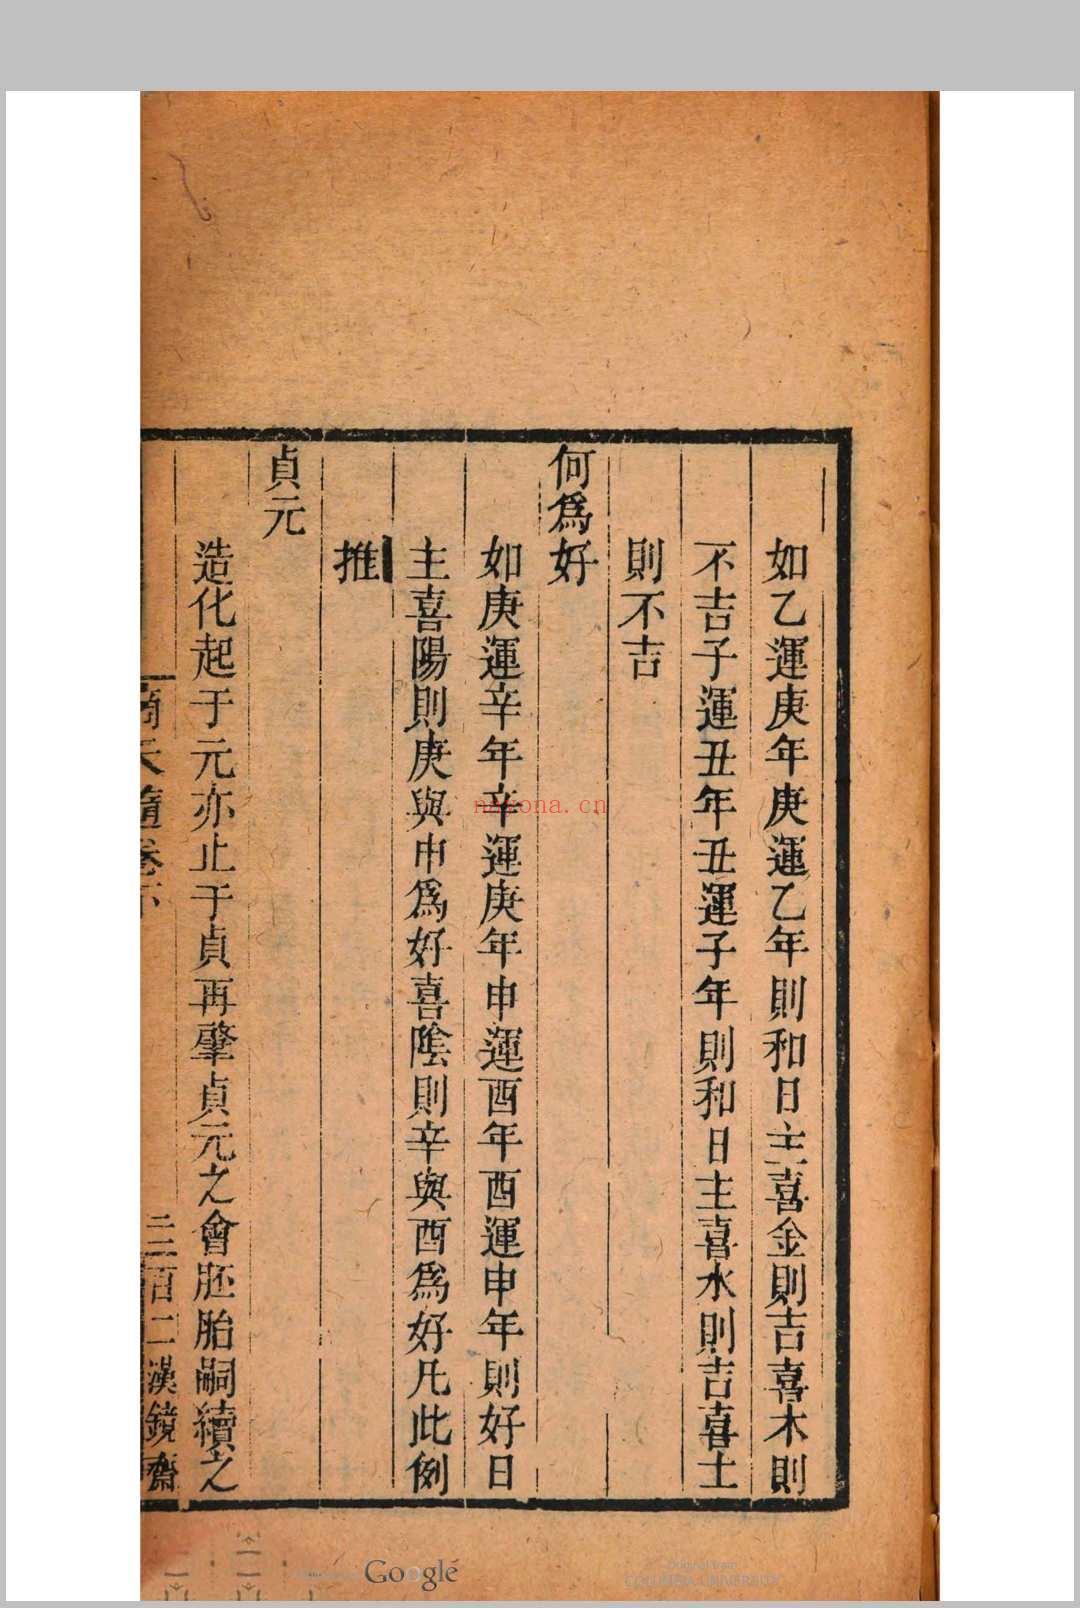 如乙運庚年庚運乙年則和日主喜金則吉喜木則
不吉子運丑年丑運子年則和日主喜水則吉喜土
則不吉
何爲好
如庚運辛年辛運庚年申運酉年酉運申年則好日
主喜陽則庚與申爲好喜陰則辛與酉爲好凡此例
推
貞元
造化起于元亦止于貞再肇貞元之會胚胎嗣續之
滴天隨卷下 三百二 漢鏡齋
nayona.cn
Google
Original from
COLUMBIA UNIVERSITY